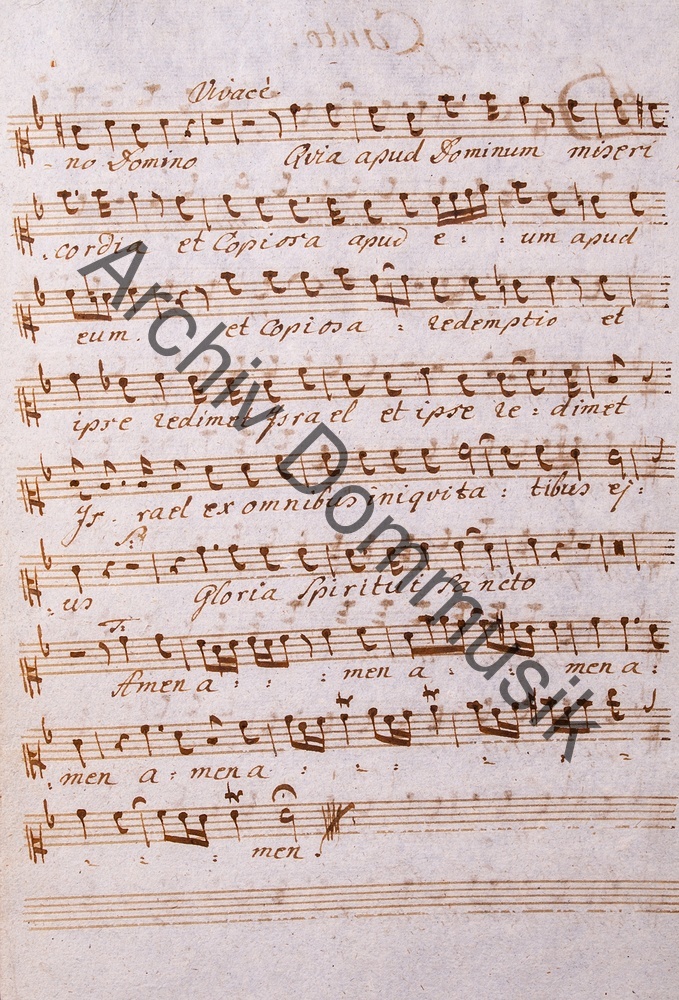 Vivacè
- no Domino Qvia apud Dominum miseri
- cordia et Copiosa apud e : : um apud
eum. et copiosa : redemptio et
ipse redimet Israel et ipse re : dimet
Is . rael ex omnibus iniqvita : tibus ej :
- us Gloria Spiritui Sancto
T:
Amen a : : : men a : : : men a :
men a : men a : - - - - -
- - - men.
Archiv Dommusik